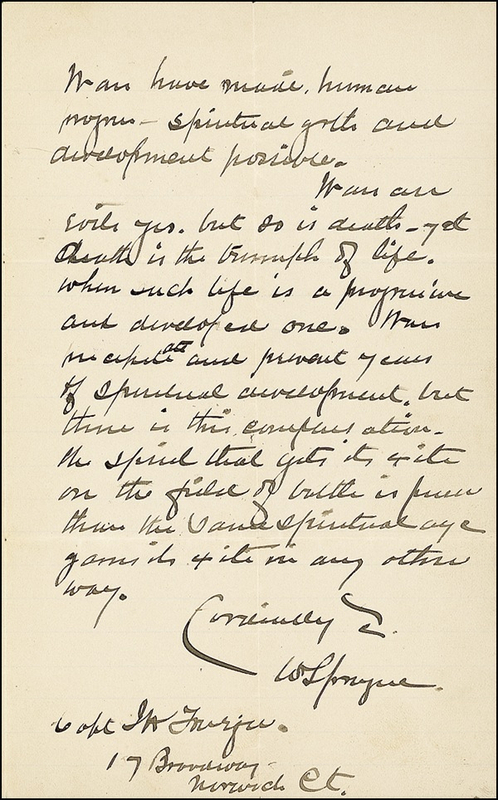 Wars have made, human
progress – spiritual groth and
development possible.
Wars are
evils yes. but so is death – yet
death is the triumph of life.
when such life is a progressive
and developed one. Wars
and prevent years
of spiritual development, but
there is this compensation –
the spirit that gets its exite
on the field of battle is purer
than the same spiritual age
gains its exite in any other
way.
Cordially
W Sprague.
Capt
17 Broadway
Norwich Ct.